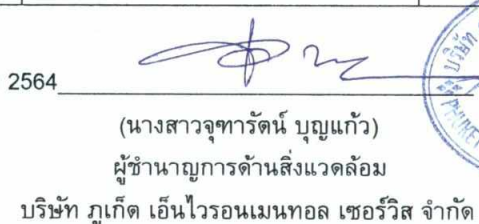 2564
(นางสาวจุฑารัตน์ บุญแก้ว)
ผู้ชำนาญการด้านสิ่งแวดล้อม
บริษัท ภูเก็ต เอ็นไวรอนเมนทอล เซอร์วิส จำกัด
บริษัท
PHUKET